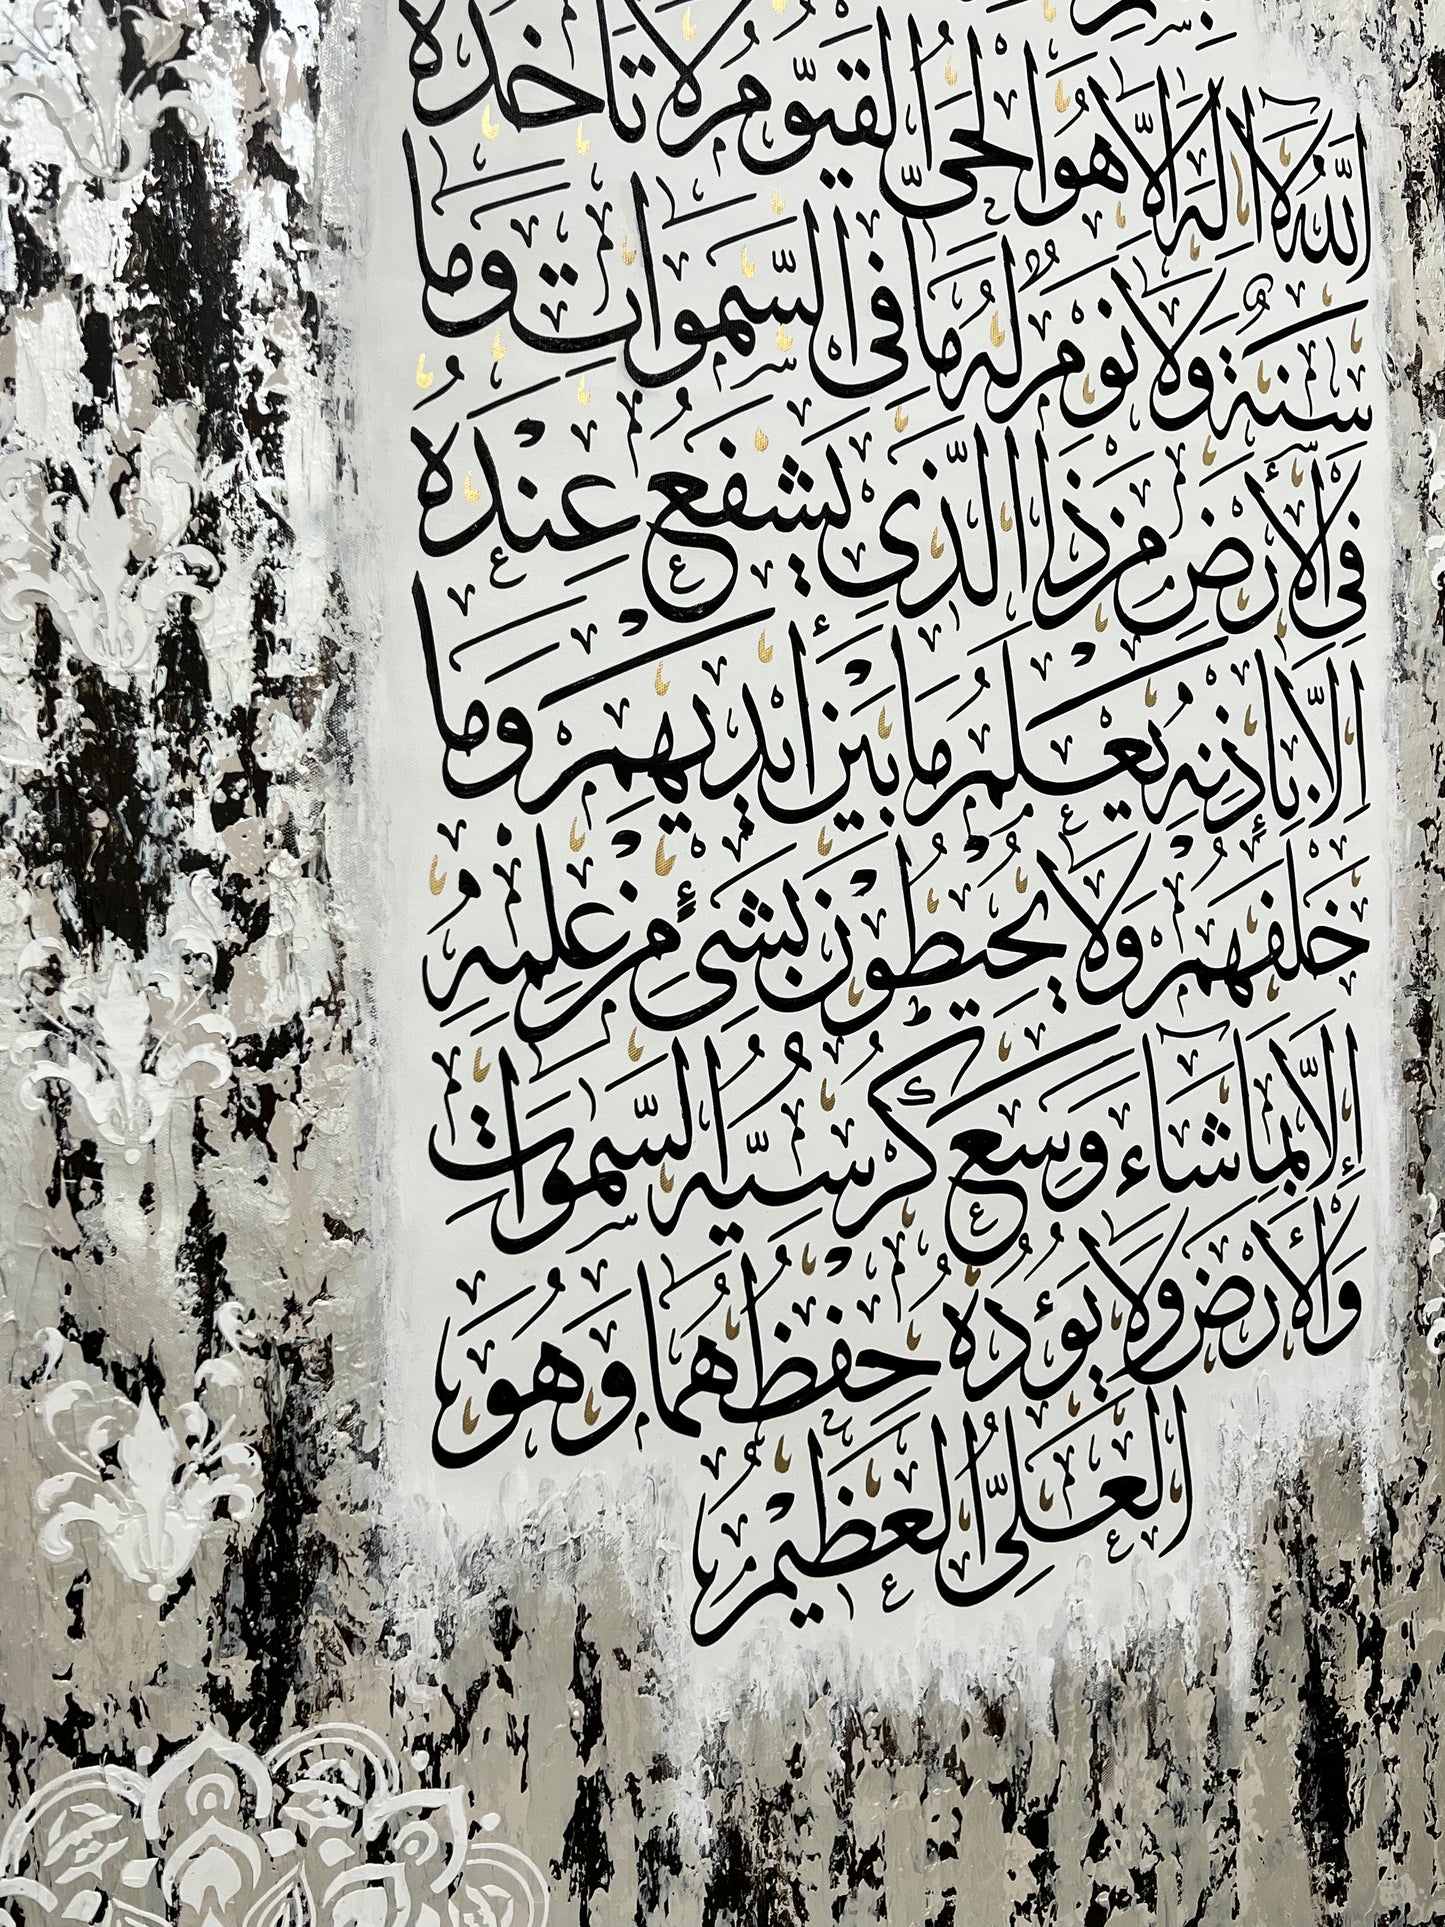 ٱللَّهُ لَا إِلَٰهَ إِلَّا هُوَ الْحَىُّ الْقَيُّومُ لَا تَأْخُذُهُ
سِنَةٌ وَلَا نَوْمٌ لَهُ مَا فِى السَّمَوَاتِ وَمَا
فِى الْأَرْضِ مَنْ ذَا الَّذِى يَشْفَعُ عِنْدَهُ
إِلَّا بِإِذْنِهِ يَعْلَمُ مَا بَيْنَ أَيْدِيهِمْ وَمَا
خَلْفَهُمْ وَلَا يُحِيطُونَ بِشَىْءٍ مِنْ عِلْمِهِ
إِلَّا بِمَا شَاءَ وَسِعَ كُرْسِيُّهُ السَّمَوَاتِ
وَالْأَرْضَ وَلَا يَؤُدُهُ حِفْظُهُمَا وَهُوَ
الْعَلِىُّ الْعَظِيمُ